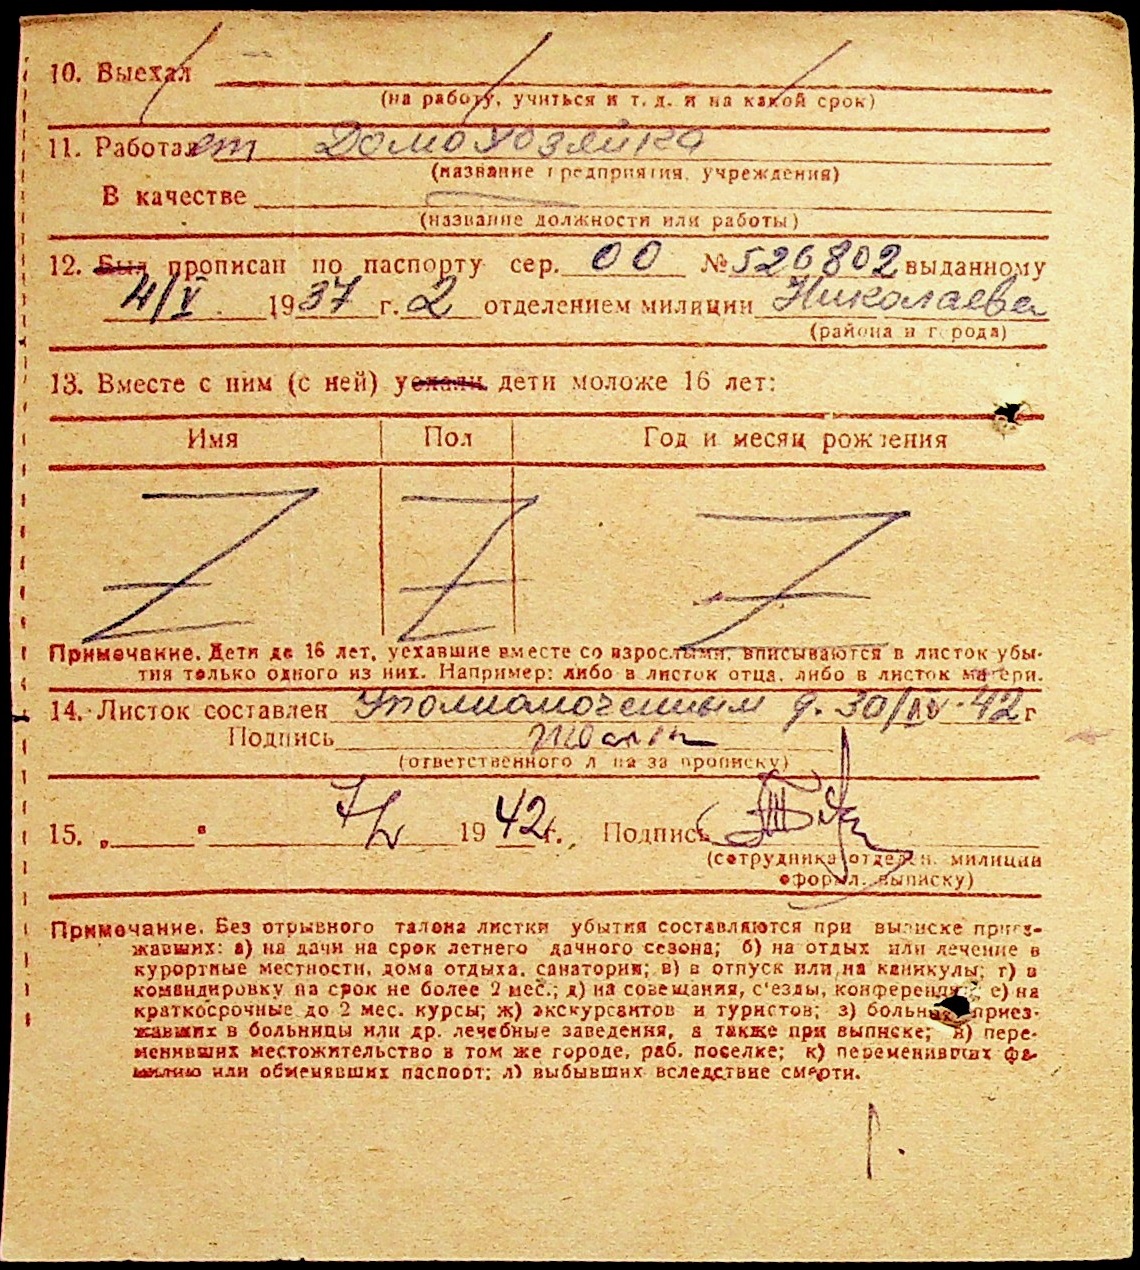 10. Выехал
(на работу, учиться и т. д. и на какой срок)
11. Работает Домохозяйка
(название предприятия, учреждения)
В качестве
(название должности или работы)
12. Был прописан по паспорту сер. 00 № 526802 выданному
4/V 1937 г. 2 отделением милиции Николаева
(района и города)
13. Вместе с ним (с ней) уехали дети моложе 16 лет:
Имя Пол Год и месяц рождения
Примечание. Дети до 16 лет, уехавшие вместе со взрослыми, вписываются в листок убы-
тия только одного из них. Например: либо в листок отца, либо в листок матери.
14. Листок составлен Уполномоченным д. 30/IV-42 г
Подпись
(ответственного лица за прописку)
15. „ " 1942 г. Подпись
(сотрудника отделен. милиции
оформл. выписку)
Примечание. Без отрывного талона листки убытия составляются при выписке приез-
жавших: а) на дачи на срок летнего дачного сезона; б) на отдых или лечение в
курортные местности, дома отдыха, санатории; в) в отпуск или на каникулы; г) в
командировку на срок не более 2 мес.; д) на совещания, с'езды, конференции; е) на
краткосрочные до 2 мес. курсы; ж) экскурсантов и туристов; з) больных, приез-
жавших в больницы или др. лечебные заведения, а также при выписке; и) пере-
менивших местожительство в том же городе, раб. поселке; к) переменивших фа-
милию или обменявших паспорт; л) выбывших вследствие смерти.